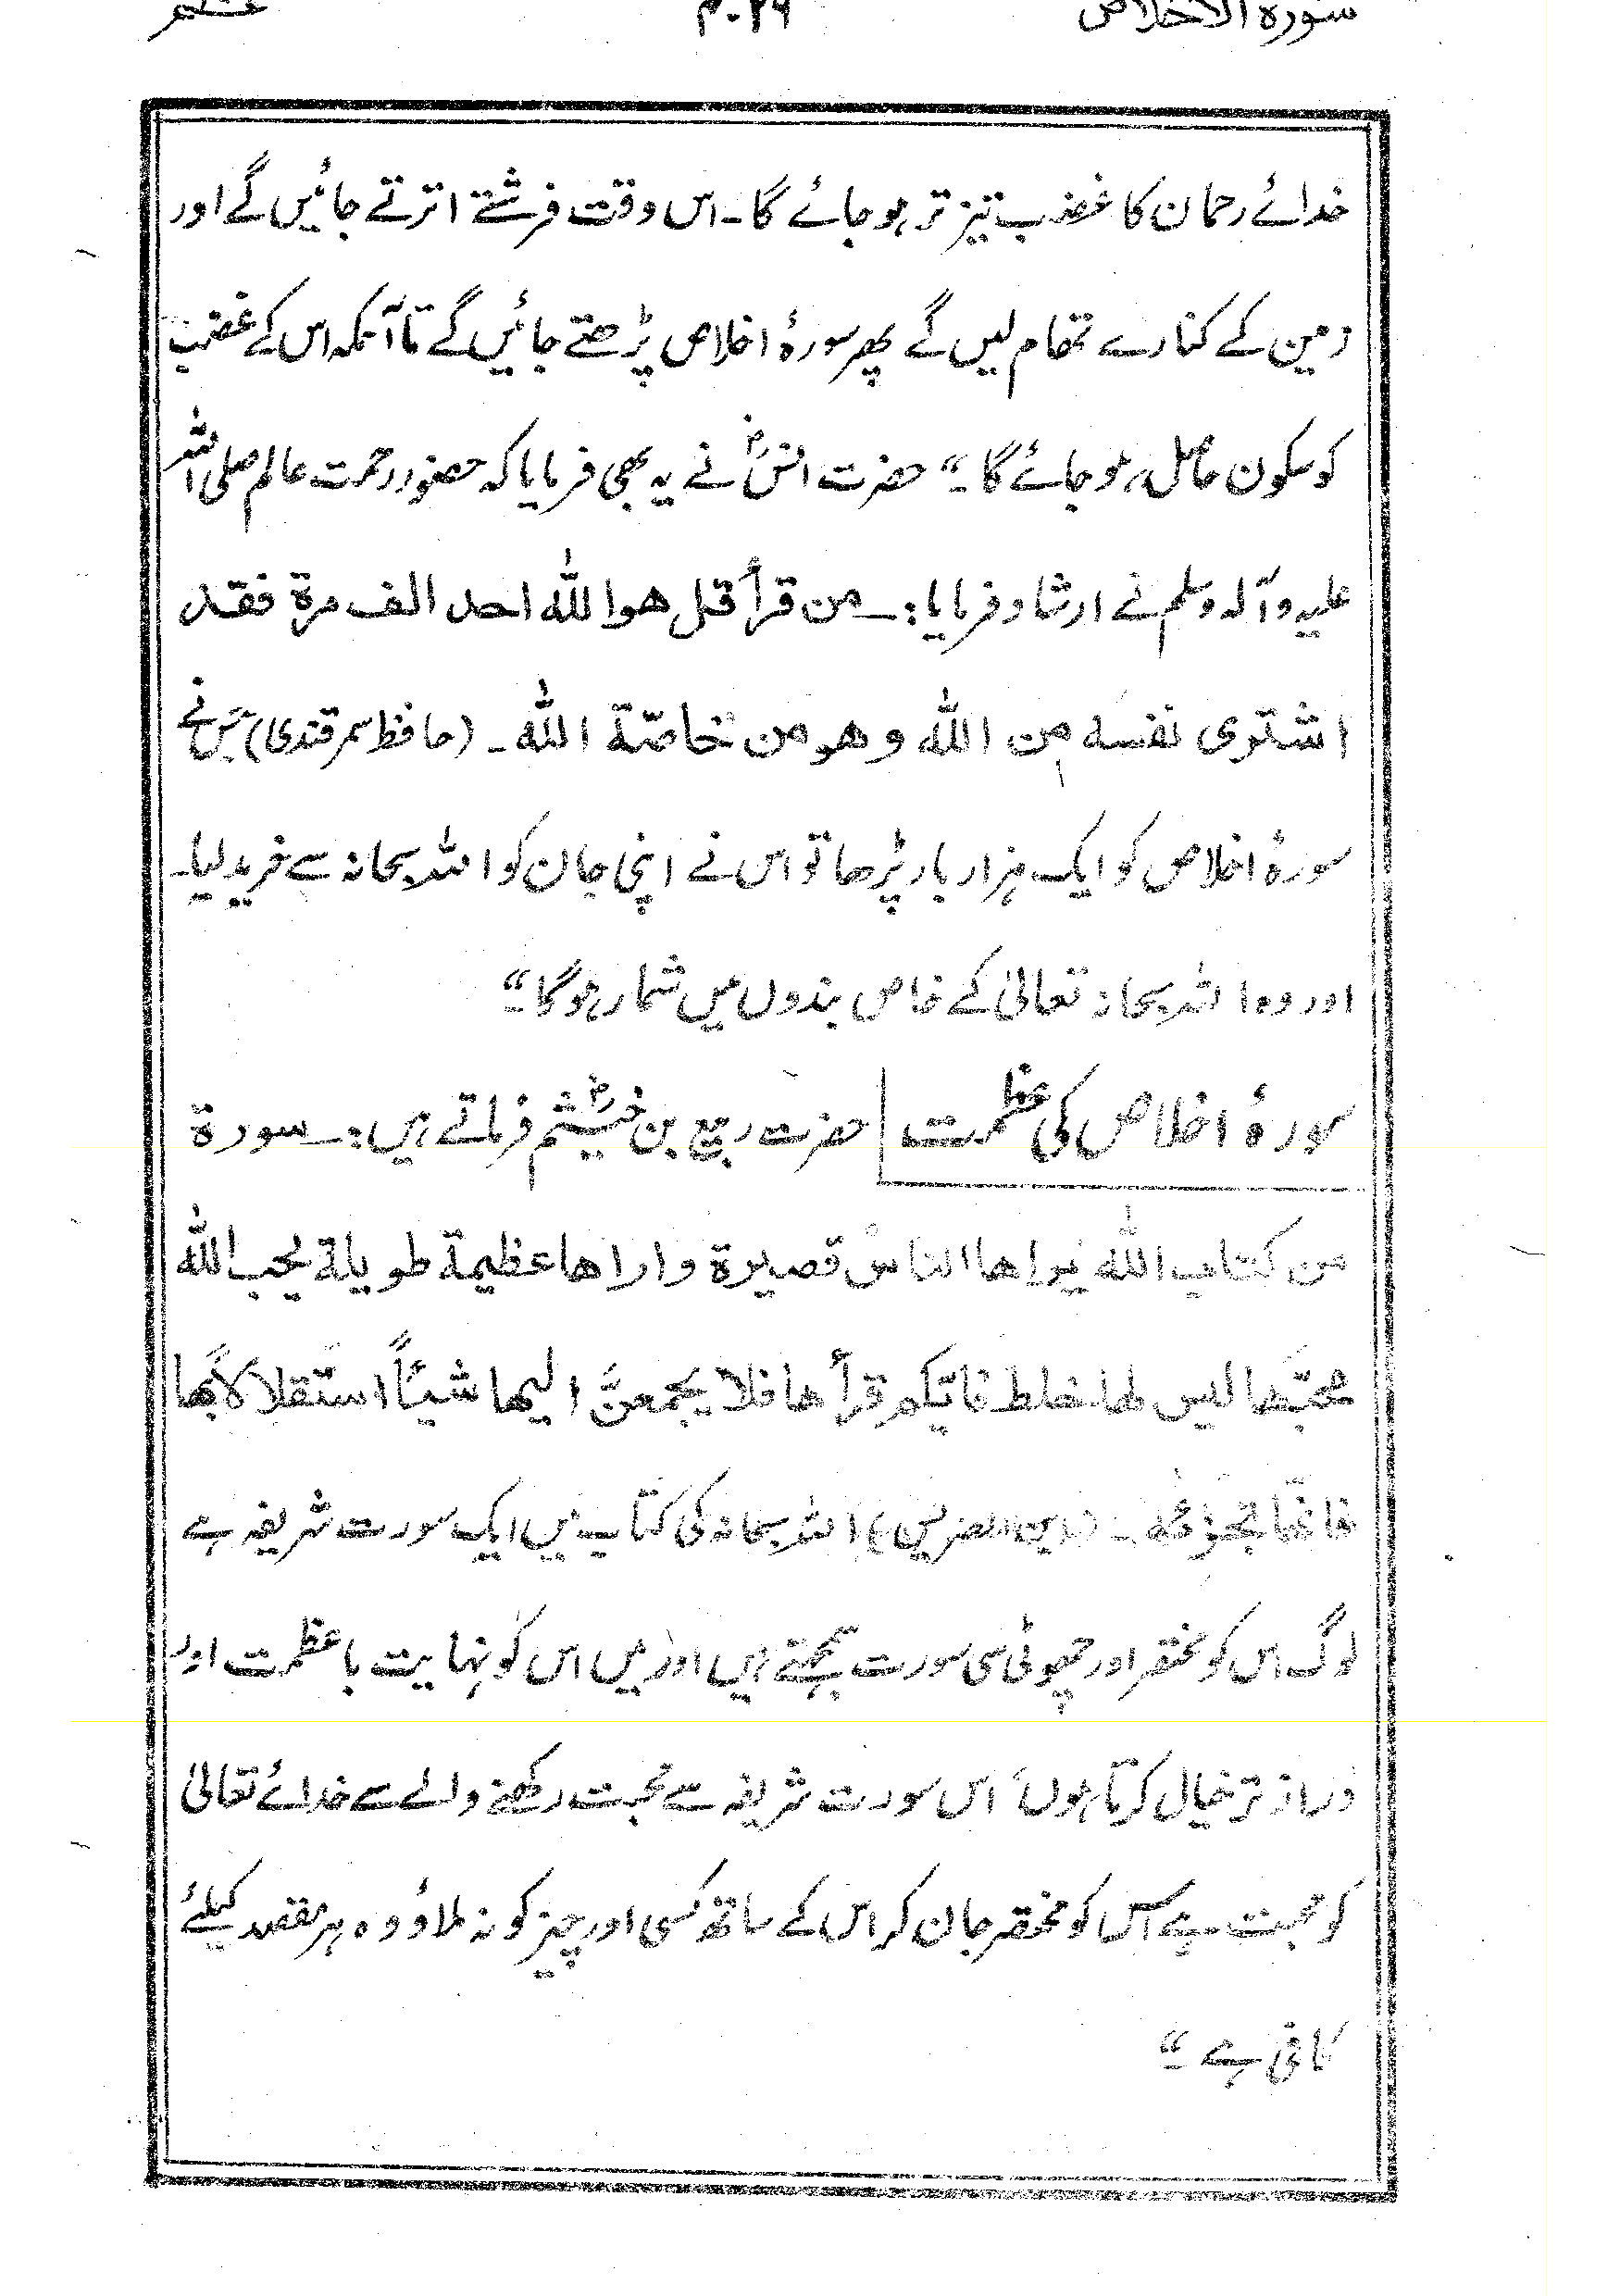 سورہ الاخلاص
خدائے رحمان کا غضب تیز تر ہو جائے گا۔ اس وقت فرشتے اترتے جائیں گے اور
زمین کے کنارے تھام لیں گے پھر سورۂ اخلاص پڑھتے جائیں گے تا آنکہ اس کے غضب
کو سکون حاصل ہو جائے گا۔" حضرت انسؓ نے یہ بھی فرمایا کہ حضور رحمت عالم صلی اللہ
علیہ وآلہ وسلم نے ارشاد فرمایا:۔ من قرأ قل هو الله احد الف مرة فقد
اشتری نفسه من الله وهو من خاصّة الله۔ (حافظ سمرقندی) جس نے
سورۂ اخلاص کو ایک ہزار بار پڑھا تو اس نے اپنی جان کو اللہ سبحانہ سے خرید لیا۔
اور وہ اللہ سبحانہ تعالیٰ کے خاص بندوں میں شمار ہوگا۔"
سورۂ اخلاص کی عظمت حضرت ربیع بن خیثمؓ فرماتے ہیں:۔ سورة
من كتاب الله يراها الناس قصيرة واراها عظيمة طويلة يحب الله
محبّها ليس لها خلط فايّكم قرأها فلا يجمعنّ اليها شيئاً استقلالاً بها
فانها تجزئه۔ (ابن الضریس) اللہ سبحانہ کی کتاب میں ایک سورت شریفہ ہے
لوگ اس کو مختصر اور چھوٹی سی سورت سمجھتے ہیں اور میں اس کو نہایت باعظمت اور
دراز تر خیال کرتا ہوں اس سورت شریفہ سے محبت رکھنے والے سے خدائے تعالیٰ
کو محبت ہے اس کو مختصر جان کر اس کے ساتھ کسی اور چیز کو نہ ملاؤ وہ ہر مقصد کیلئے
کافی ہے۔"